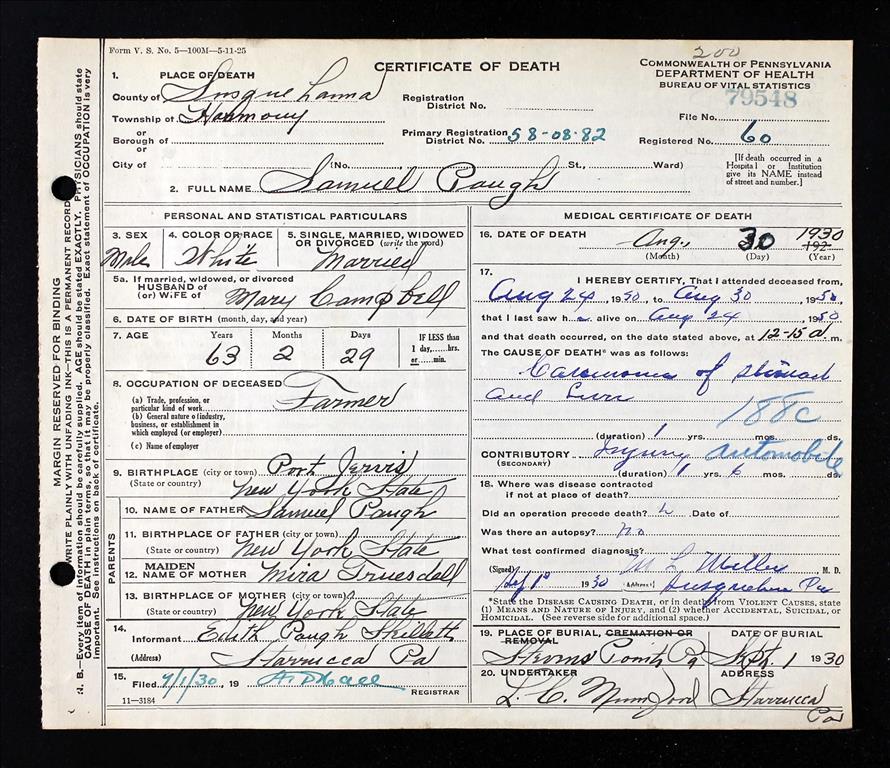 Form V. S. No. 5—100M—5-11-25
200
CERTIFICATE OF DEATH
COMMONWEALTH OF PENNSYLVANIA
DEPARTMENT OF HEALTH
BUREAU OF VITAL STATISTICS
79548
1. PLACE OF DEATH
County of Susquehanna
Township of Harmony
or
Borough of
or
City of
Registration District No.
Primary Registration District No. 58-08-82
File No.
Registered No. 60
(No. St., Ward)
[If death occurred in a Hospital or Institution give its NAME instead of street and number.]
2. FULL NAME Samuel Paugh
MARGIN RESERVED FOR BINDING
WRITE PLAINLY WITH UNFADING INK—THIS IS A PERMANENT RECORD
B.—Every item of information should be carefully supplied. AGE should be stated EXACTLY. PHYSICIANS should state
CAUSE OF DEATH in plain terms, so that it may be properly classified. Exact statement of OCCUPATION is very
important. See instructions on back of certificate.
PERSONAL AND STATISTICAL PARTICULARS
3. SEX
Male
4. COLOR OR RACE
White
5. SINGLE, MARRIED, WIDOWED OR DIVORCED (write the word)
Married
5a. If married, widowed, or divorced
HUSBAND of
(or) WIFE of Mary Campbell
6. DATE OF BIRTH (month, day, and year)
7. AGE Years Months Days
63 2 29
IF LESS than 1 day,....hrs. or....min.
8. OCCUPATION OF DECEASED
(a) Trade, profession, or particular kind of work Farmer
(b) General nature of industry, business, or establishment in which employed (or employer)
(c) Name of employer
9. BIRTHPLACE (city or town) Port Jervis
(State or country) New York State
PARENTS
10. NAME OF FATHER Samuel Paugh
11. BIRTHPLACE OF FATHER (city or town)
(State or country) New York State
12. MAIDEN NAME OF MOTHER Mira Truesdell
13. BIRTHPLACE OF MOTHER (city or town)
(State or country) New York State
14. Informant Edith Paugh Skillett
(Address) Starrucca Pa
15. Filed 9/1/30, 19
REGISTRAR
11—3184
MEDICAL CERTIFICATE OF DEATH
16. DATE OF DEATH Aug. 30 1930
192
(Month) (Day) (Year)
17. I HEREBY CERTIFY, That I attended deceased from
Aug 24, 1930, to Aug 30 1930,
that I last saw h alive on Aug 24 1930
and that death occurred, on the date stated above, at 12-15 a m.
The CAUSE OF DEATH* was as follows:
Carcinoma of stomach
and Liver
188c
(duration) 1 yrs. mos. ds.
CONTRIBUTORY Injury automobile
(SECONDARY)
(duration) 1 6 ds.
18. Where was disease contracted
if not at place of death?
Did an operation precede death? Date of
Was there an autopsy? no
What test confirmed diagnosis?
(Signed) M L Miller M. D.
1930 (Address) Susquehanna Pa
*State the DISEASE CAUSING DEATH, or in death from VIOLENT CAUSES, state
(1) MEANS AND NATURE OF INJURY, and (2) whether ACCIDENTAL, SUICIDAL, or
HOMICIDAL. (See reverse side for additional space.)
19. PLACE OF BURIAL, CREMATION OR REMOVAL
DATE OF BURIAL
Pa Sept. 1 1930
20. UNDERTAKER
ADDRESS
L. C. Mumford Starrucca
Pa